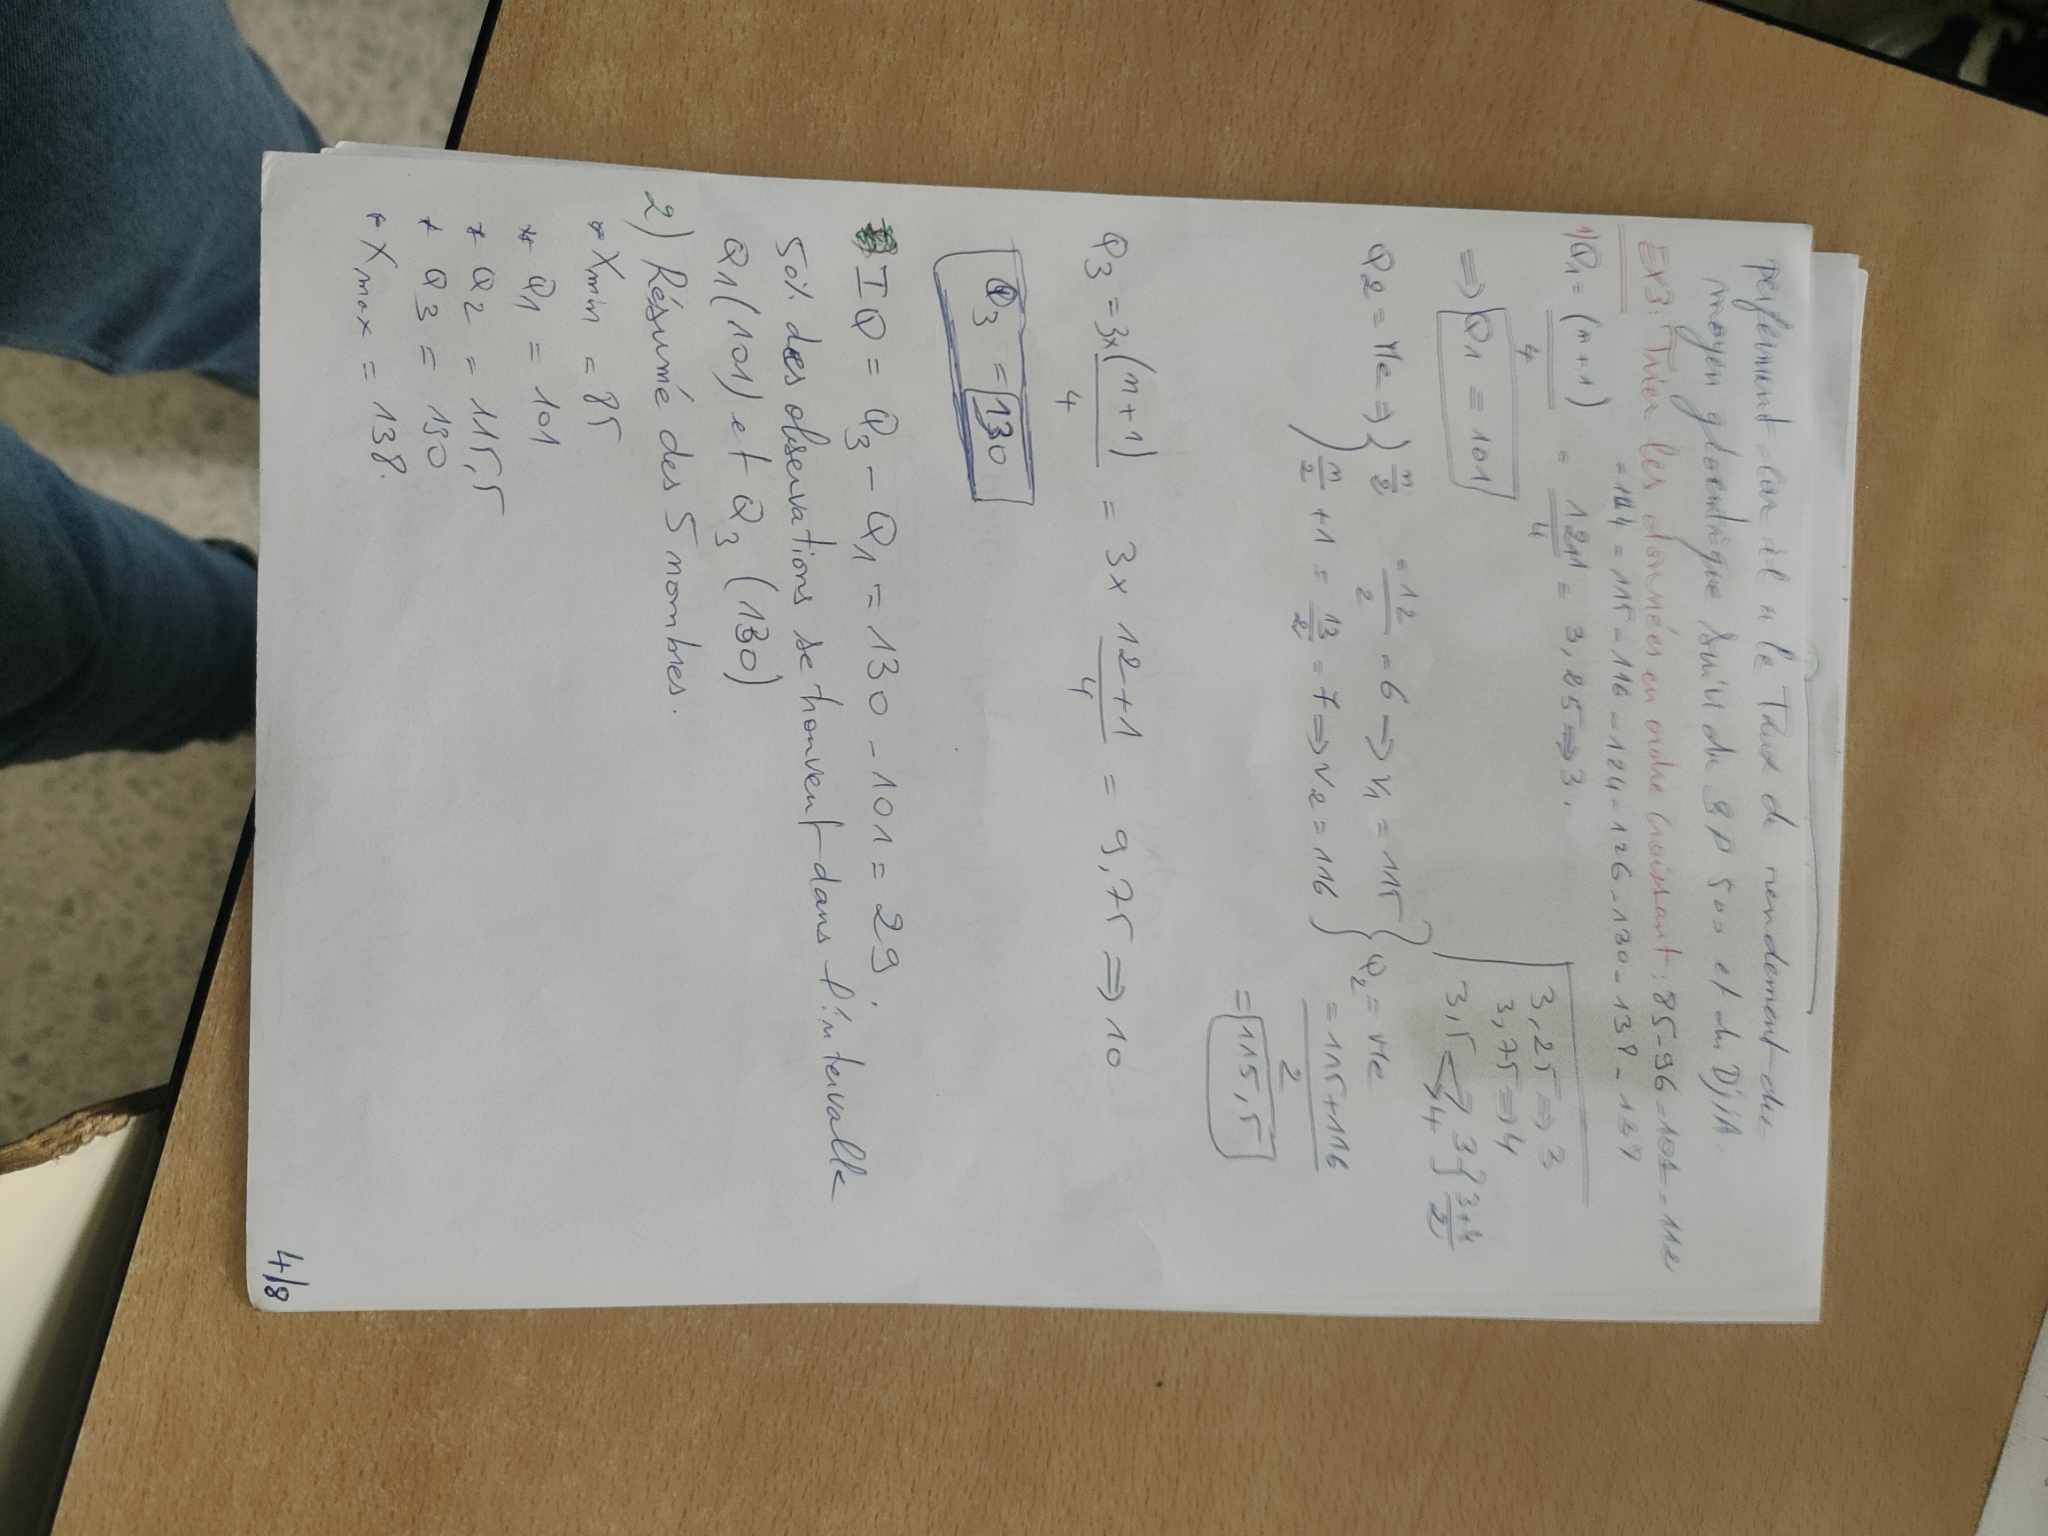 performant car il a le Taux de rendement du
moyen géométrique suivi du SP 500 et du DJIA.
EX3: Trier les données en ordre croissant : 85-96-101-112
=114 = 115 - 116 - 124 - 126 - 130 - 138 - 138
1) Q1 = (n+1) / 4 = 12+1 / 4 = 3,25 => 3.
3,25 => 3
3,75 => 4
3,5 3 4 } 3+4 / 2
=> Q1 = 101
Q2 = Me => } n/2 = 12/2 = 6 => V1 = 115
n/2 + 1 = 13/2 = 7 => V2 = 116 } Q2 = Me
= 115+116 / 2
= 115,5
Q3 = 3x(n+1) / 4 = 3x 12+1 / 4 = 9,75 => 10
Q3 = 130
IQ = Q3 - Q1 = 130 - 101 = 29
50% des observations se trouvent dans l'intervalle
Q1 (101) et Q3 (130)
2) Résumé des 5 nombres.
* Xmin = 85
* Q1 = 101
* Q2 = 115,5
* Q3 = 130
* Xmax = 138.
4/8